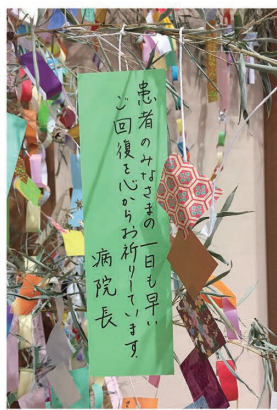 患者のみなさまの一日も早い
ご回復を心からお祈りしています。
病院長